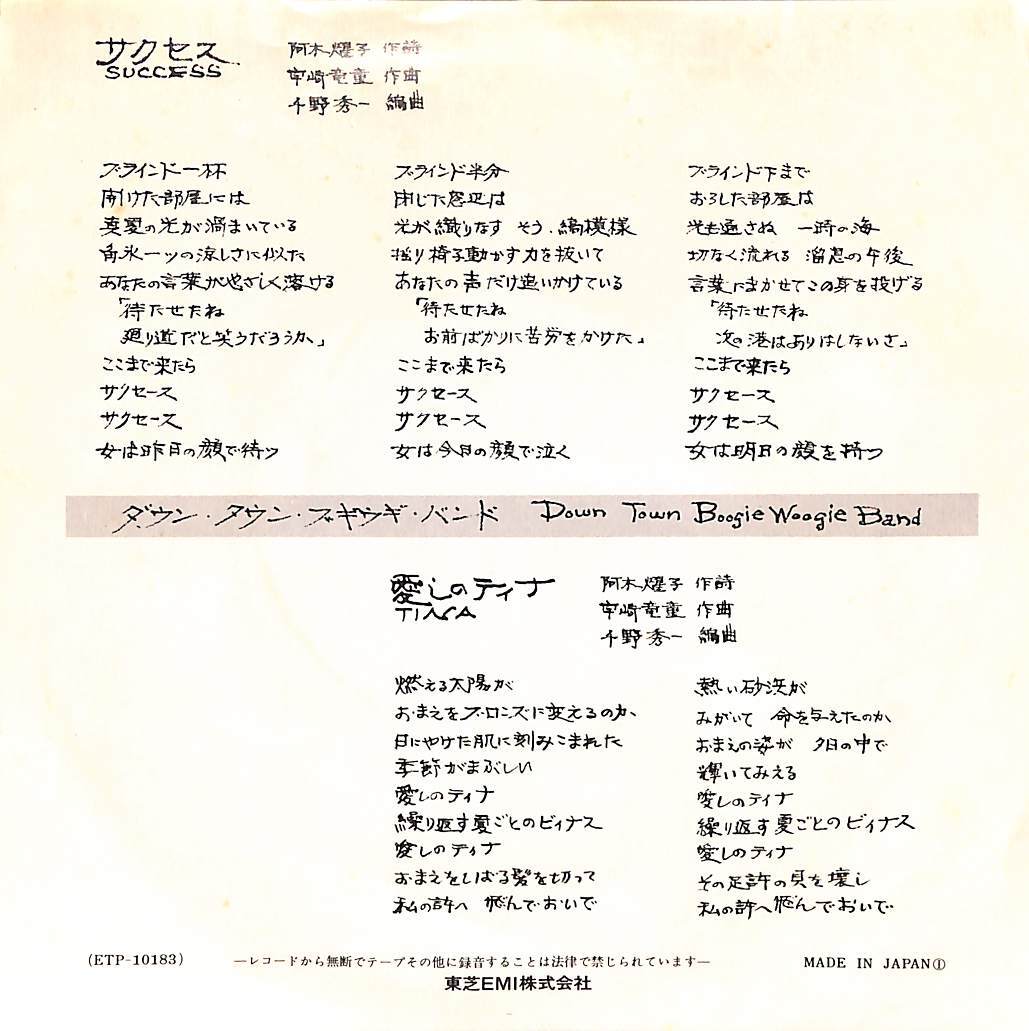 サクセス
SUCCESS
阿木燿子 作詩
宇崎竜童 作曲
千野秀一 編曲
ブラインド一杯
開けた部屋には
真夏の光が渦まいている
角氷一ッの涼しさに似た
あなたの言葉がやさしく溶ける
「待たせたね
廻り道だと笑うだろうか」
ここまで来たら
サクセース
サクセース
女は昨日の顔で待つ
ブラインド半分
閉じた窓辺は
光が織りなす そう、縞模様
揺り椅子動かす力を抜いて
あなたの声だけ追いかけている
「待たせたね
お前ばかりに苦労をかけた」
ここまで来たら
サクセース
サクセース
女は今日の顔で泣く
ブラインド下まで
おろした部屋は
光も通さぬ 一時の海
切なく流れる 溜息の午後
言葉にまかせてこの身を投げる
「待たせたね
次の港はありはしないさ」
ここまで来たら
サクセース
サクセース
女は明日の顔を持つ
ダウン・タウン・ブギウギ・バンド Down Town Boogie Woogie Band
愛しのティナ
TINA
阿木燿子 作詩
宇崎竜童 作曲
千野秀一 編曲
燃える太陽が
おまえをブロンズに変えるのか、
日にやけた肌に刻みこまれた
季節がまぶしい
愛しのティナ
繰り返す夏ごとのビィナス
愛しのティナ
おまえをしばる髪を切って
私の許へ 飛んでおいで
熱い砂浜が
みがいて 命を与えたのか
おまえの姿が 夕日の中で
輝いてみえる
愛しのティナ
繰り返す夏ごとのビィナス
愛しのティナ
その足許の貝を壊し
私の許へ飛んでおいで
(ETP-10183)
—レコードから無断でテープその他に録音することは法律で禁じられています—
MADE IN JAPAN①
東芝EMI株式会社